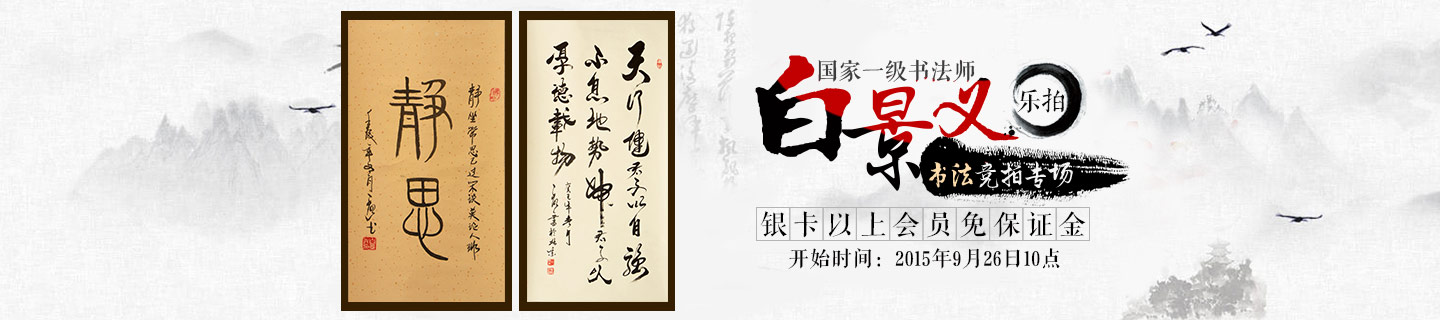 静坐常思己过闲谈莫论人非
静思
天行健君子以自强
不息地势坤君子以
厚德载物
国家一级书法师
白景义
乐拍
书法竞拍专场
银卡以上会员免保证金
开始时间：2015年9月26日10点